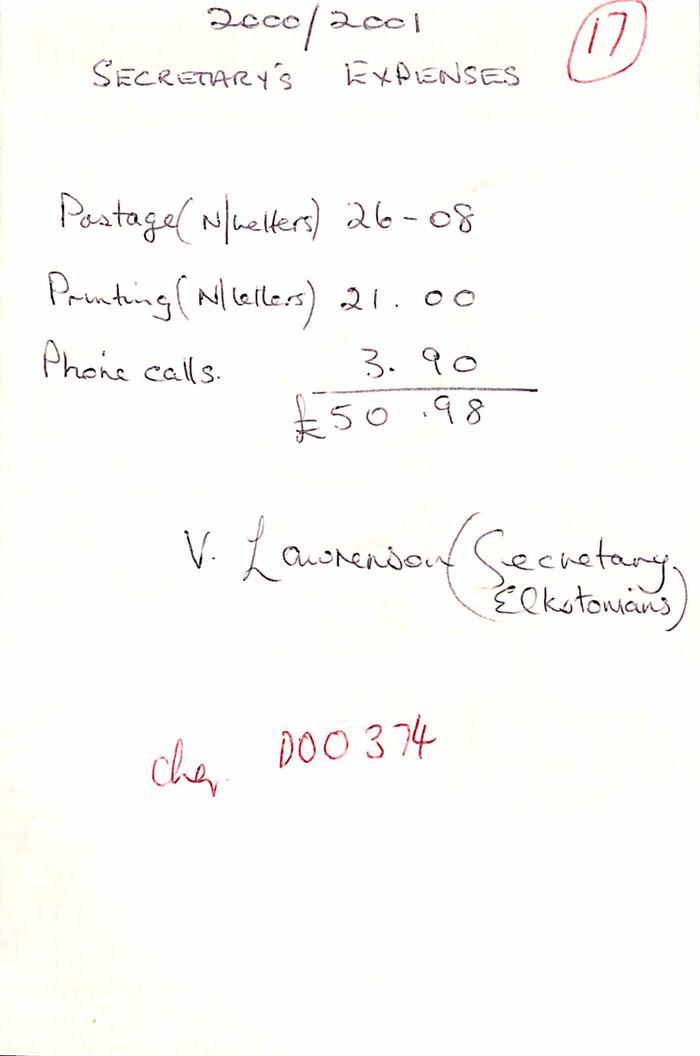 2000/2001
17
SECRETARY'S EXPENSES
Postage (N/Letters) 26-08
Printing (N/letters) 21.00
Phone calls. 3.90
£50.98
V. Lawrenson (Secretary,
Elkstonians)
Chq. 000374